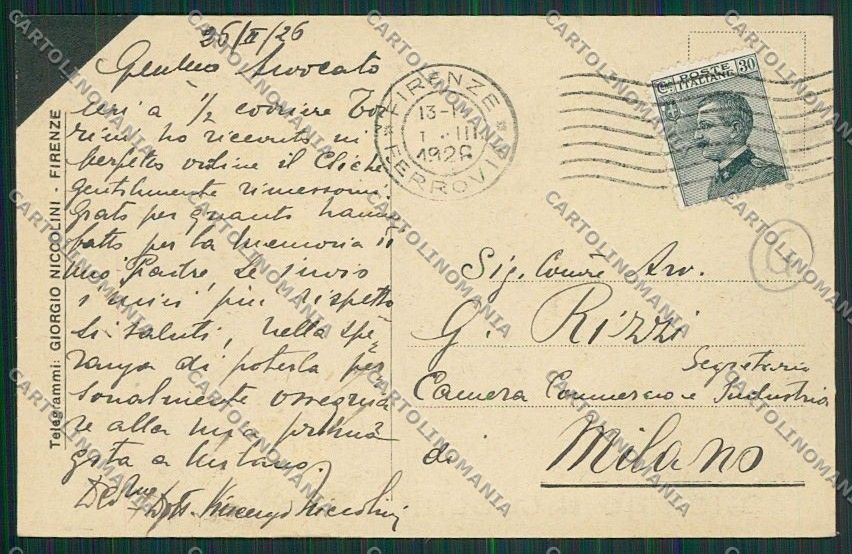 26/II/26
Gent.mo Avvocato
ieri a 1/2 corriere To
rino ho ricevuto in
perfetto ordine il Cliché
gentilmente rimessomi.
Grato per quanto hanno
fatto per la memoria di
mio Padre, Le invio
i miei più rispetto
si saluti, nella spe
ranza di poterla per
sonalmente ossequia
re alla mia prima
gita a Milano.
Dev.mo
Dott. Vincenzo Niccolini
Telegrammi: GIORGIO NICCOLINI - FIRENZE
FIRENZE
FERROVIA
13-
III
1926
POSTE
ITALIANE
Cent. 30
6
Sig. Comm. Avv.
G. Rizzi
Segretario
Camera Commercio e Industria
di Milano
CARTOLINOMANIA